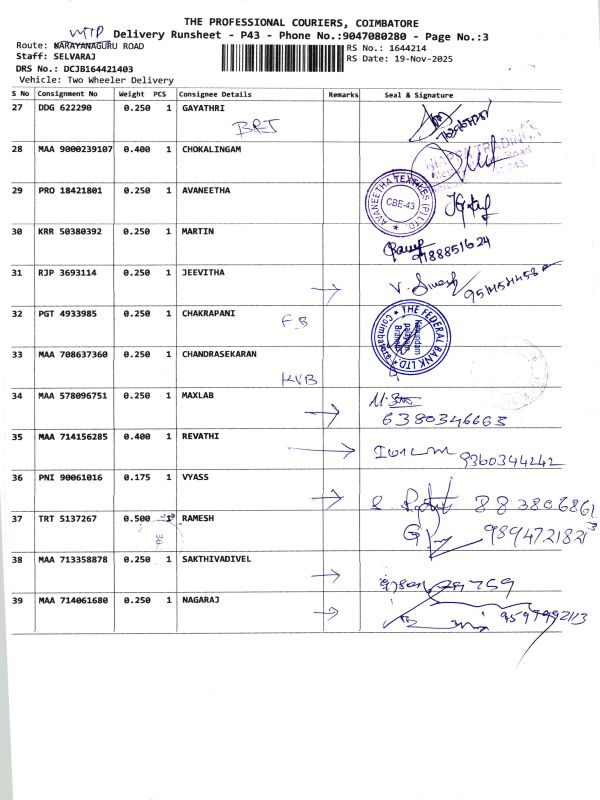 THE PROFESSIONAL COURIERS, COIMBATORE
MTP
Delivery Runsheet - P43 - Phone No.:9047080280 - Page No.:3
Route: NARAYANAGURU ROAD
RS No.: 1644214
Staff: SELVARAJ
RS Date: 19-Nov-2025
DRS No.: DCJB164421403
Vehicle: Two Wheeler Delivery
S No Consignment No Weight PCS Consignee Details Remarks Seal & Signature
27 DDG 622290 0.250 1 GAYATHRI
28 MAA 9000239107 0.400 1 CHOKALINGAM
29 PRO 18421801 0.250 1 AVANEETHA
AVANEETHA TEXTILES (P) LTD.
CBE-43
30 KRR 50380392 0.250 1 MARTIN
9188851624
31 RJP 3693114 0.250 1 JEEVITHA
32 PGT 4933985 0.250 1 CHAKRAPANI
FB
THE FEDERAL BANK LTD
Coimbatore
33 MAA 708637360 0.250 1 CHANDRASEKARAN
KVB
34 MAA 578096751 0.250 1 MAXLAB
6380346663
35 MAA 714156285 0.400 1 REVATHI
9360344242
36 PNI 90061016 0.175 1 VYASS
37 TRT 5137267 0.500 1 RAMESH
38 MAA 713358878 0.250 1 SAKTHIVADIVEL
39 MAA 714061680 0.250 1 NAGARAJ